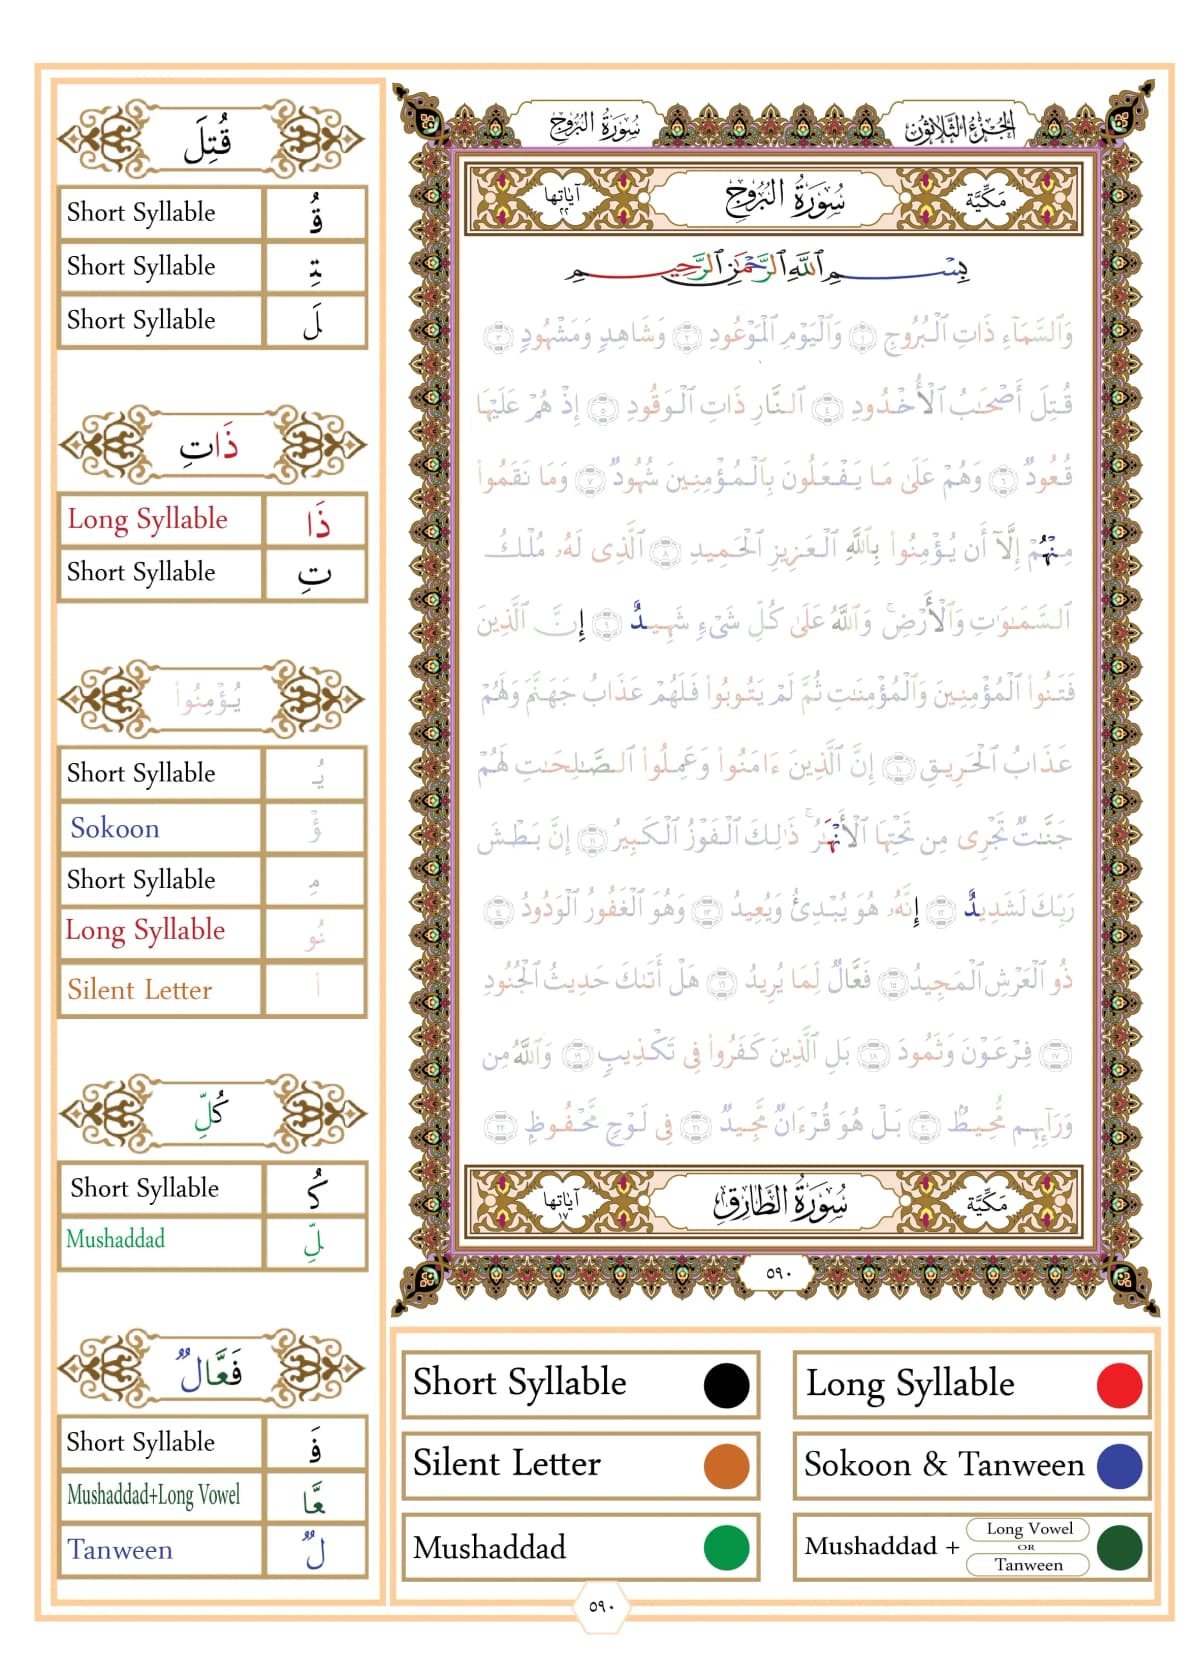 سُورَةُ البُرُوج
الجُزْءُ الثَّلَاثُون
مَكِّيَّة
سُورَةُ البُرُوج
آيَاتُهَا
٢٢
بِسْمِ ٱللَّهِ ٱلرَّحْمَٰنِ ٱلرَّحِيمِ
وَٱلسَّمَآءِ ذَاتِ ٱلْبُرُوجِ ١ وَٱلْيَوْمِ ٱلْمَوْعُودِ ٢ وَشَاهِدٍ وَمَشْهُودٍ ٣
قُتِلَ أَصْحَٰبُ ٱلْأُخْدُودِ ٤ ٱلنَّارِ ذَاتِ ٱلْوَقُودِ ٥ إِذْ هُمْ عَلَيْهَا
قُعُودٌ ٦ وَهُمْ عَلَىٰ مَا يَفْعَلُونَ بِٱلْمُؤْمِنِينَ شُهُودٌ ٧ وَمَا نَقَمُوا۟
مِنْهُمْ إِلَّآ أَن يُؤْمِنُوا۟ بِٱللَّهِ ٱلْعَزِيزِ ٱلْحَمِيدِ ٨ ٱلَّذِى لَهُۥ مُلْكُ
ٱلسَّمَٰوَٰتِ وَٱلْأَرْضِۚ وَٱللَّهُ عَلَىٰ كُلِّ شَىْءٍ شَهِيدٌ ٩ إِنَّ ٱلَّذِينَ
فَتَنُوا۟ ٱلْمُؤْمِنِينَ وَٱلْمُؤْمِنَٰتِ ثُمَّ لَمْ يَتُوبُوا۟ فَلَهُمْ عَذَابُ جَهَنَّمَ وَلَهُمْ
عَذَابُ ٱلْحَرِيقِ ١٠ إِنَّ ٱلَّذِينَ ءَامَنُوا۟ وَعَمِلُوا۟ ٱلصَّٰلِحَٰتِ لَهُمْ
جَنَّٰتٌ تَجْرِى مِن تَحْتِهَا ٱلْأَنْهَٰرُۚ ذَٰلِكَ ٱلْفَوْزُ ٱلْكَبِيرُ ١١ إِنَّ بَطْشَ
رَبِّكَ لَشَدِيدٌ ١٢ إِنَّهُۥ هُوَ يُبْدِئُ وَيُعِيدُ ١٣ وَهُوَ ٱلْغَفُورُ ٱلْوَدُودُ ١٤
ذُو ٱلْعَرْشِ ٱلْمَجِيدُ ١٥ فَعَّالٌ لِّمَا يُرِيدُ ١٦ هَلْ أَتَىٰكَ حَدِيثُ ٱلْجُنُودِ
١٧ فِرْعَوْنَ وَثَمُودَ ١٨ بَلِ ٱلَّذِينَ كَفَرُوا۟ فِى تَكْذِيبٍ ١٩ وَٱللَّهُ مِن
وَرَآئِهِم مُّحِيطٌ ٢٠ بَلْ هُوَ قُرْءَانٌ مَّجِيدٌ ٢١ فِى لَوْحٍ مَّحْفُوظٍ ٢٢
مَكِّيَّة
سُورَةُ الطَّارِق
آيَاتُهَا
١٧
٥٩٠
قُتِلَ
Short Syllable قُ
Short Syllable تِ
Short Syllable لَ
ذَاتِ
Long Syllable ذَا
Short Syllable تِ
يُؤْمِنُوا۟
Short Syllable يُ
Sokoon ؤْ
Short Syllable مِ
Long Syllable نُو
Silent Letter ا
كُلِّ
Short Syllable كُ
Mushaddad لِّ
فَعَّالٌ
Short Syllable فَ
Mushaddad+Long Vowel عَّا
Tanween لٌ
Short Syllable
Long Syllable
Silent Letter
Sokoon & Tanween
Mushaddad
Mushaddad + Long Vowel OR Tanween
٥٩٠